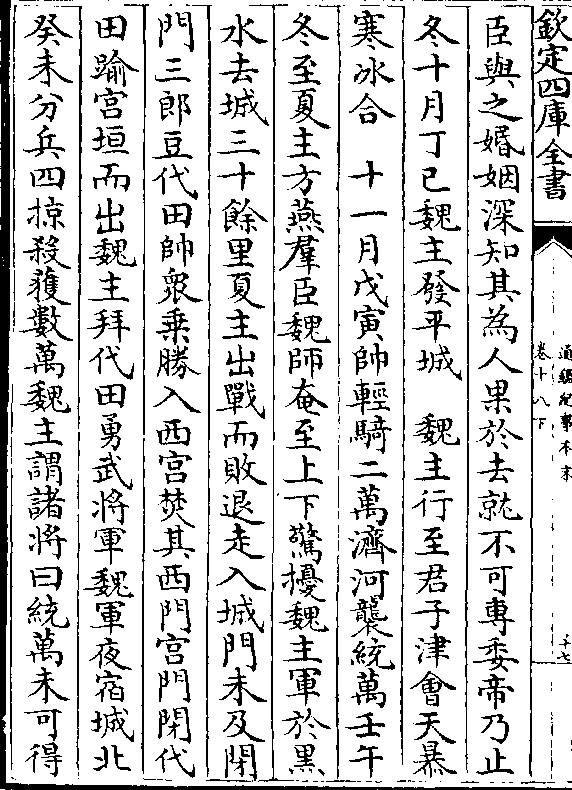 欽定四庫全書
通鑑紀事本末
卷十八下
十七
臣與之婚姻深知其為人果於去就不可專委帝乃止
冬十月丁已魏主發平城　魏主行至君子津會天暴
寒冰合　十一月戊寅帥輕騎二萬濟河襲統萬壬午
冬至夏主方燕羣臣魏師奄至上下驚擾魏主軍於黑
水去城三十餘里夏主出戰而敗退走入城門未及閉
門三郎豆代田帥衆乗勝入西宫焚其西門宫門閉代
田踰宫垣而出魏主拜代田勇武將軍魏軍夜宿城北
癸未分兵四掠殺獲數萬魏主謂諸將曰統萬未可得